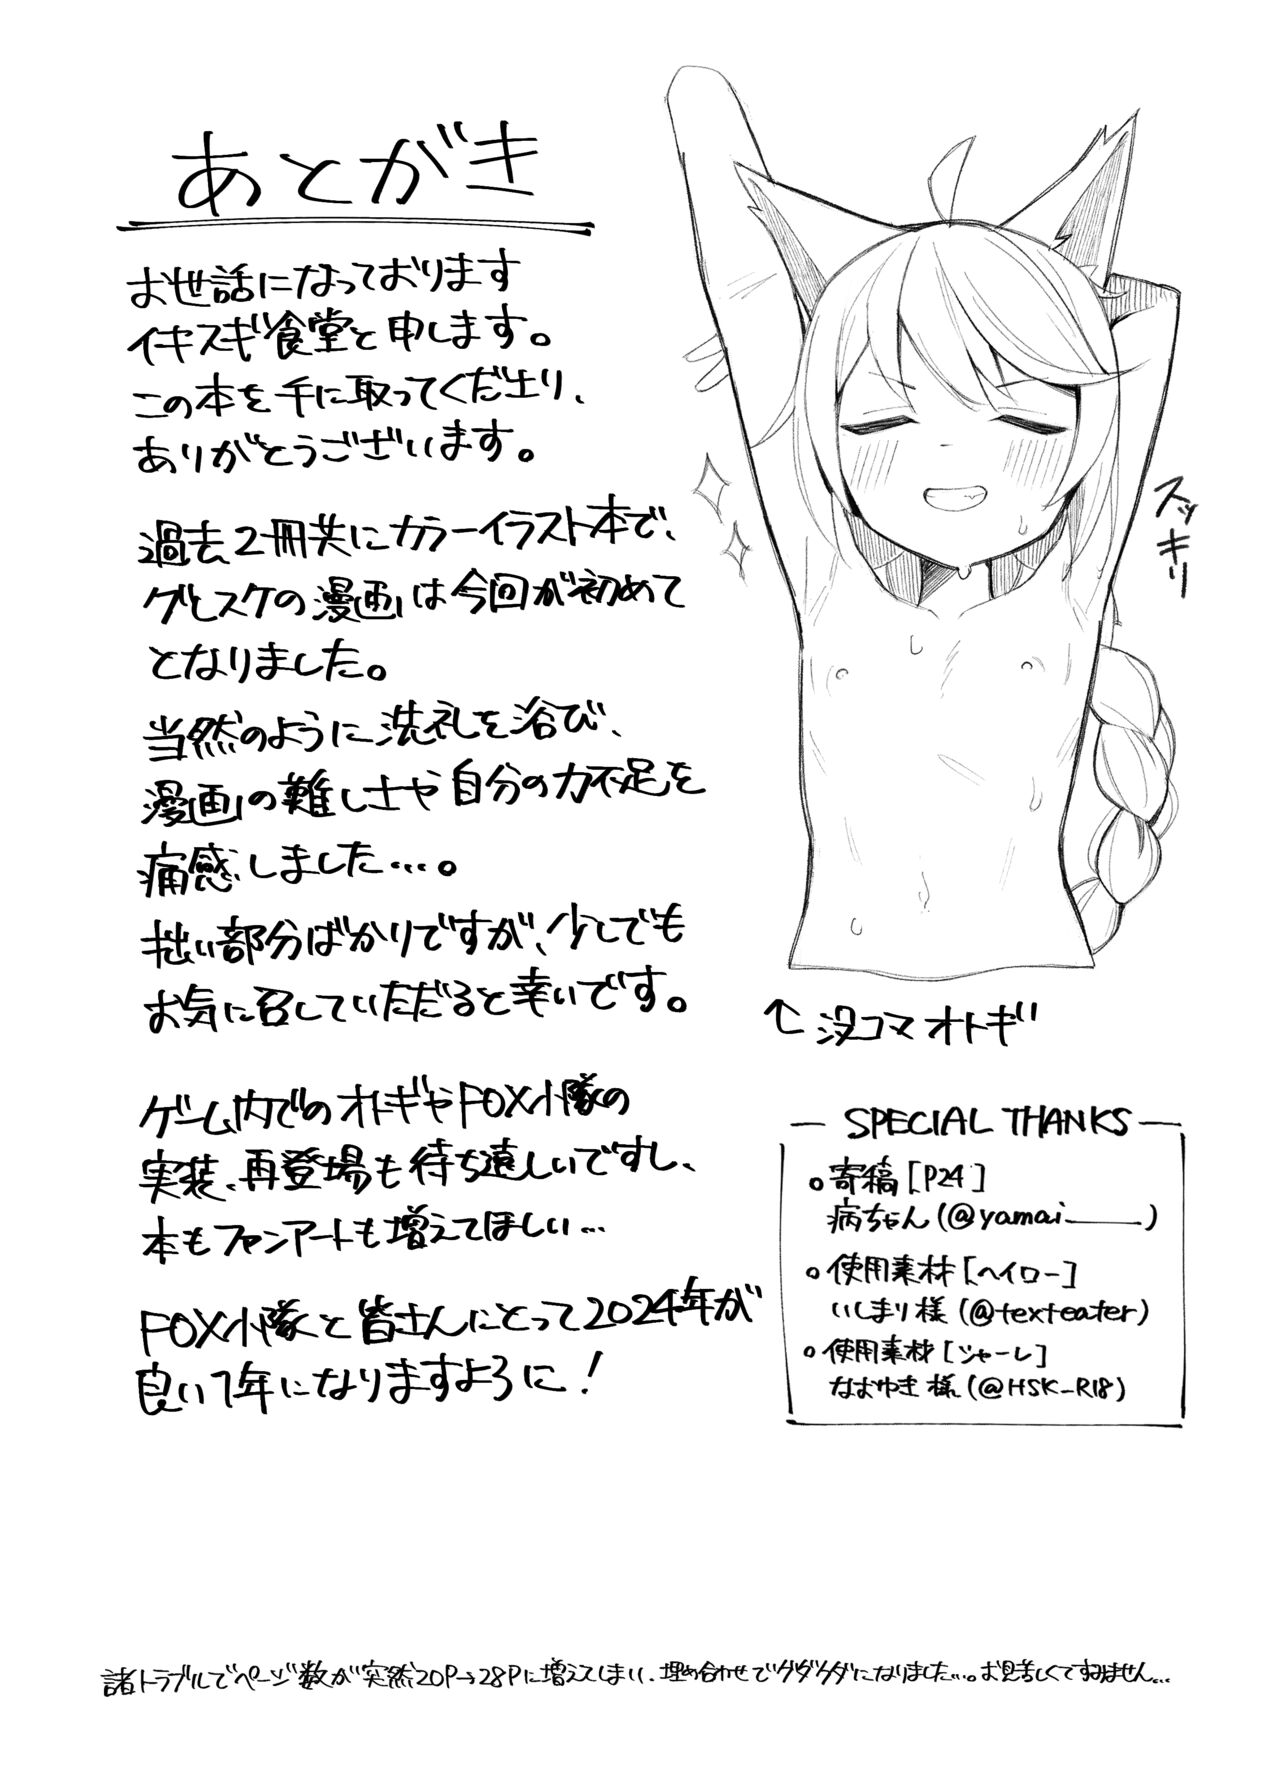 あとがき
お世話になっております
イキスギ食堂と申します。
この本を手に取ってくださり、
ありがとうございます。
過去2冊共にカラーイラスト本で、
グレスケの漫画は今回が初めて
となりました。
当然のように洗礼を浴び、
漫画の難しさや自分の力不足を
痛感しました…。
拙い部分ばかりですが、少しでも
お気に召していただけると幸いです。
ゲーム内でのオトギやFOX小隊の
実装、再登場も待ち遠しいですし、
本もファンアートも増えてほしい…
FOX小隊と皆さんにとって2024年が
良い1年になりますように!
スッキリ
↑没コマオトギ
SPECIAL THANKS
○寄稿[P24]
病ちゃん(@yamai_____)
○使用素材[ヘイロー]
いしまり様(@texteater)
○使用素材[シャーレ]
なおゆき様(@HSK_R18)
諸トラブルでページ数が突然20P→28Pに増えてしまい、埋め合わせでグダグダになりました…。お見苦しくてすみません…